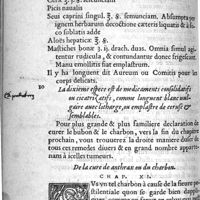 Picis naualis
Seui caprini singul. ʒ. β. semunciam. Absumpto
ignem herbarum decoctione cæteris liquatis & à fo
co sublatis adde
Aloës hepaticæ ʒ. β.
Mastiches bonæ ʒ. ij. drach. duas. Omnia simul agi
tentur rudicula, & contundantur donec frigescant.
Manu emollitis fiat emplastrum.
Il y ha l'onguent dit Aureum ou Comitis pour les
corps delicats.
10 La dixiesme espece est de medicaments consolidatifs
ou cicatrisatifs, comme l'onguent blanc vul-
gaire auec lytharge, un emplastre de ceruse &
semblables.
Pour plus grande & plus familiere declaration de
curer le bubon & le charbon, vers la fin du chapitre
prochain, vous trouuerez la maniere de
tous ces remedes diuers & en grand nombre appar-
tenants à icelles tumeurs.
De la cure de anthrax ou du charbon.
CHAP. XI.
Vaynt tel charbon à cause de la fieure pe-
stilentiale quon se garde bien d'appli-